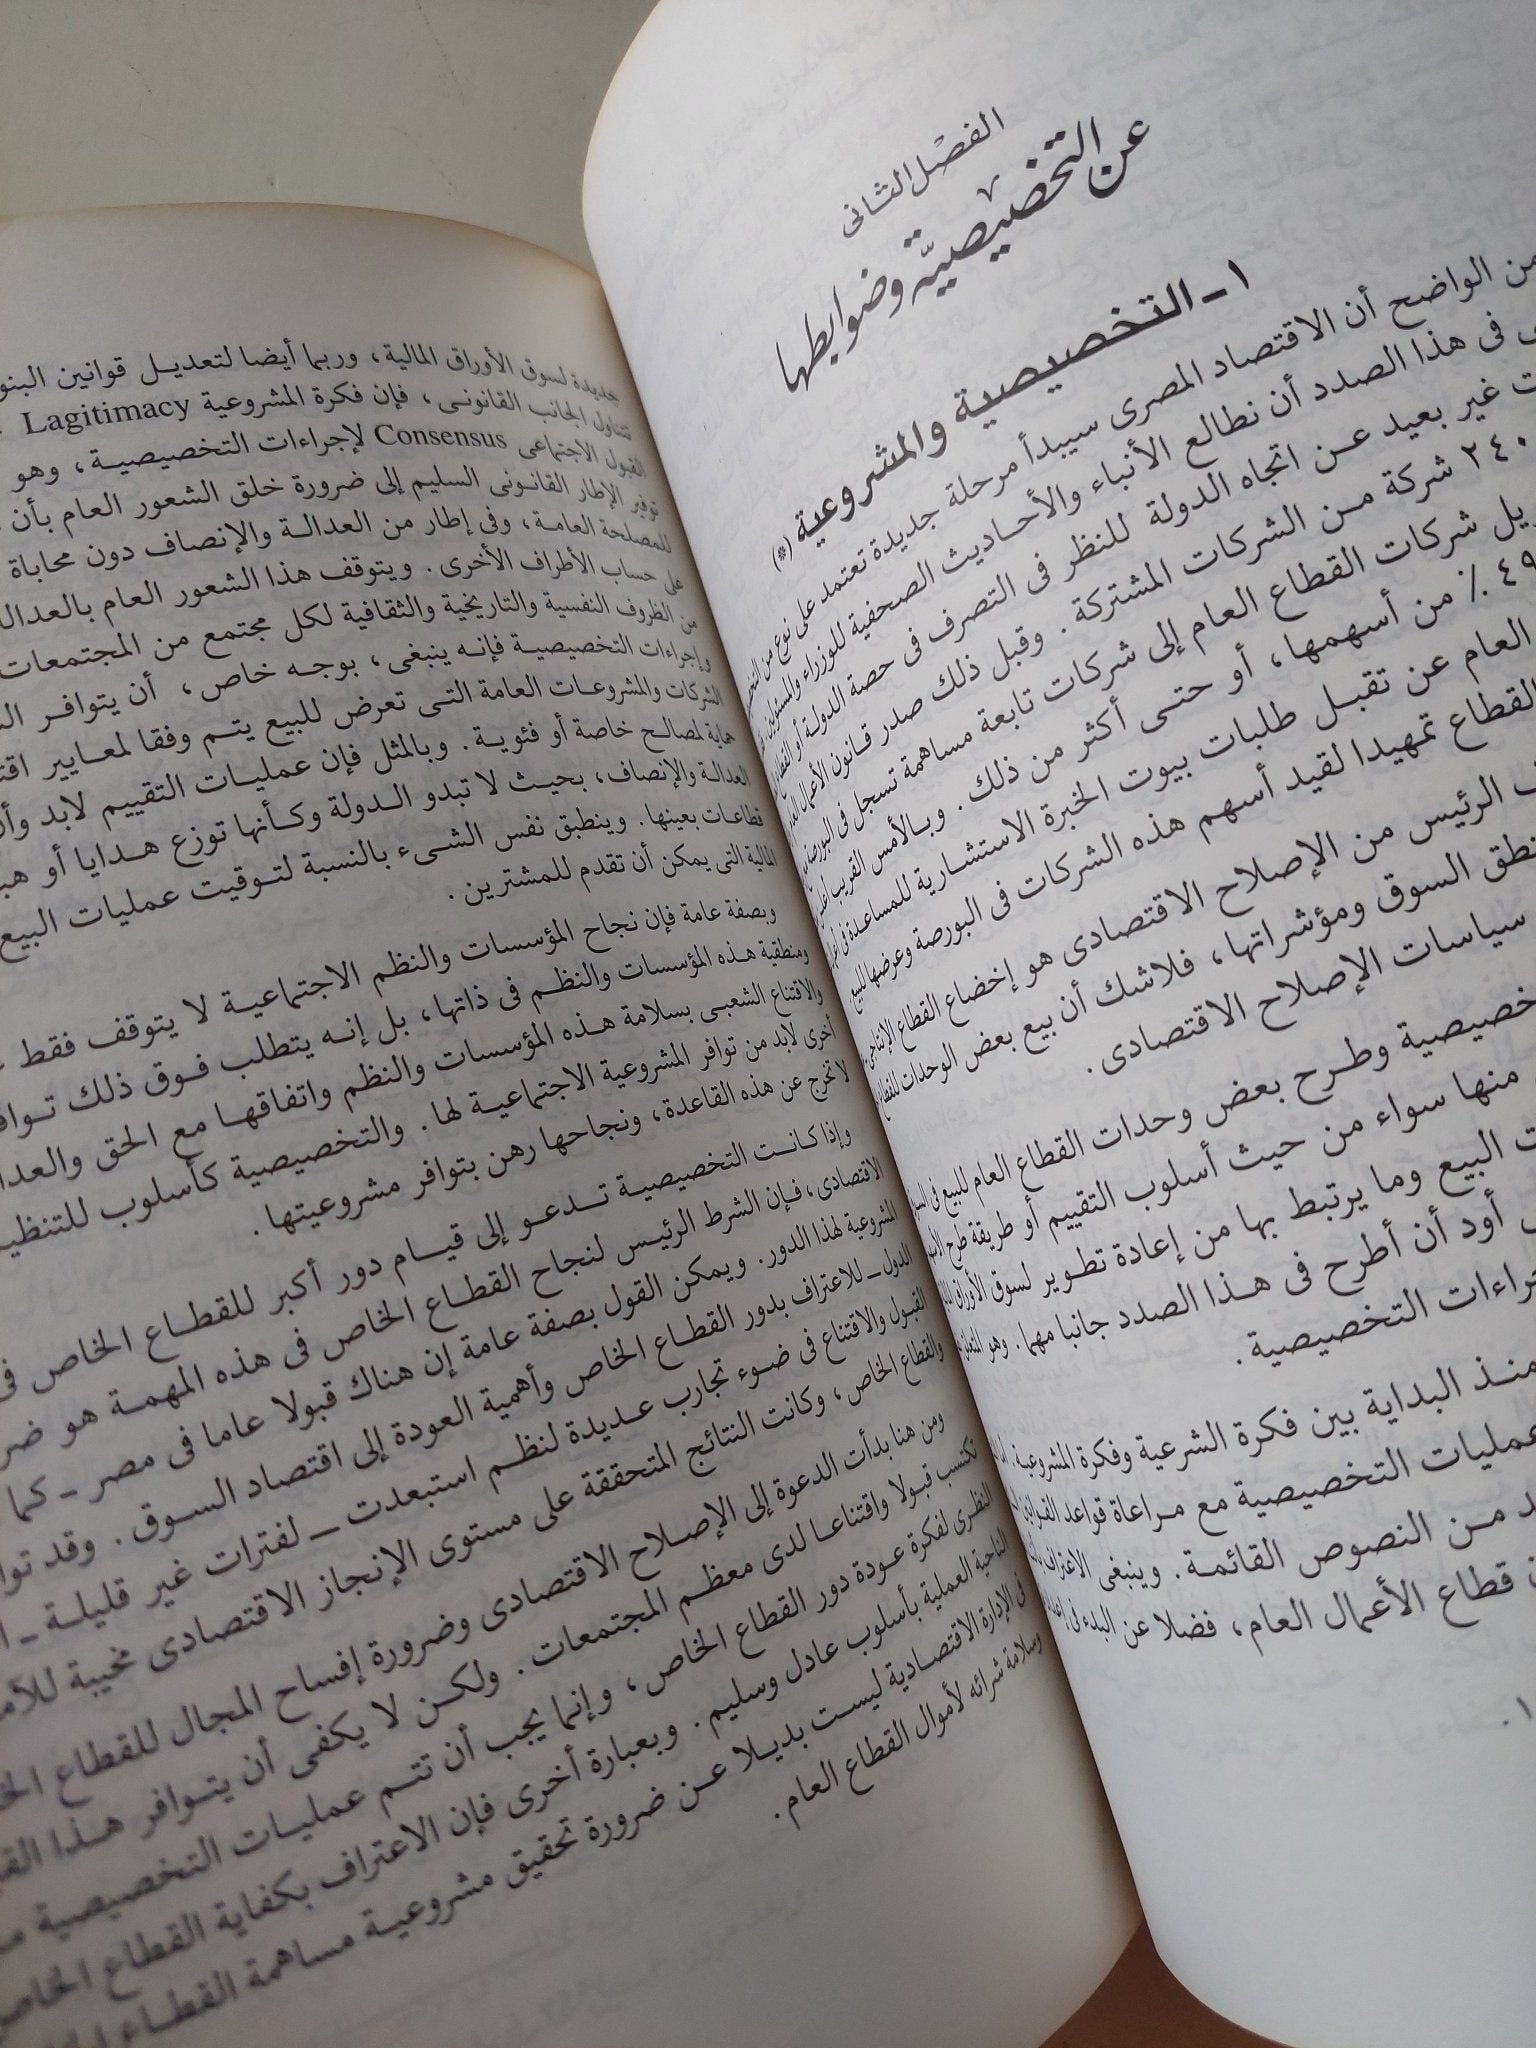 الفصل الثانى
عن التخصيصية وضوابطها
١ ـ التخصيصية والمشروعية (*)
من الواضح أن الاقتصاد المصرى سيبدأ مرحلة جديدة تعتمد على نوع من
فى هذا الصدد أن نطالع الأنباء والأحاديث الصحفية للوزراء والمسئولين
غير بعيد عن اتجاه الدولة للنظر فى التصرف فى حصة الدولة أو القطاع
٢٤٠ شركة من الشركات المشتركة . وقبل ذلك صدر قانون الأعمال
شركات القطاع العام إلى شركات تابعة مساهمة تسجل فى البورصة
٤٩ ٪ من أسهمها، أو حتى أكثر من ذلك . وبالأمس القريب
العام عن تقبل طلبات بيوت الخبرة الاستشارية للمساعدة فى
القطاع تمهيدا لقيد أسهم هذه الشركات فى البورصة وعرضها للبيع .
الرئيس من الإصلاح الاقتصادى هو إخضاع القطاع الإنتاجى
السوق ومؤشراتها، فلاشك أن بيع بعض الوحدات للقطاع
سياسات الإصلاح الاقتصادى .
وطرح بعض وحدات القطاع العام للبيع فى
منها سواء من حيث أسلوب التقييم أو طريقة طرح
البيع وما يرتبط بها من إعادة تطوير لسوق الأوراق
أود أن أطرح فى هذا الصدد جانبا مهما . وهو
التخصيصية .
منذ البداية بين فكرة الشرعية وفكرة المشروعية .
عمليات التخصيصية مع مراعاة قواعد
من النصوص القائمة . وينبغى الاعتراف
قطاع الأعمال العام، فضلا عن البدء فى
جديدة لسوق الأوراق المالية، وربما أيضا لتعديل قوانين
تتناول الجانب القانونى، فإن فكرة المشروعية Lagitimacy
القبول الاجتماعى Consensus لإجراءات التخصيصية، وهو
توفير الإطار القانونى السليم إلى ضرورة خلق الشعور العام بأن
للمصلحة العامة، وفى إطار من العدالة والإنصاف دون محاباة
على حساب الأطراف الأخرى . ويتوقف هذا الشعور العام
من الظروف النفسية والتاريخية والثقافية لكل مجتمع من المجتمعات
وإجراءات التخصيصية فإنه ينبغى، بوجه خاص، أن يتوافر
الشركات والمشروعات العامة التى تعرض للبيع يتم وفقا لمعايير
حماية لمصالح خاصة أو فئوية . وبالمثل فإن عمليات التقييم لابد
العدالة والإنصاف، بحيث لا تبدو الدولة وكأنها توزع هدايا أو
قطاعات بعينها . وينطبق نفس الشىء بالنسبة لتوقيت عمليات البيع
المالية التى يمكن أن تقدم للمشترين .
وبصفة عامة فإن نجاح المؤسسات والنظم الاجتماعية لا يتوقف فقط
ومنطقية هذه المؤسسات والنظم فى ذاتها، بل إنه يتطلب فوق ذلك
والاقتناع الشعبى بسلامة هذه المؤسسات والنظم واتفاقها مع الحق
أخرى لابد من توافر المشروعية الاجتماعية لها . والتخصيصية كأسلوب
لا تخرج عن هذه القاعدة، ونجاحها رهن بتوافر مشروعيتها .
وإذا كانت التخصيصية تدعو إلى قيام دور أكبر للقطاع الخاص
الاقتصادى، فإن الشرط الرئيس لنجاح القطاع الخاص فى هذه المهمة هو
المشروعية لهذا الدور . ويمكن القول بصفة عامة إن هناك قبولا عاما فى مصر ـ كما
الدول ـ للاعتراف بدور القطاع الخاص وأهمية العودة إلى اقتصاد السوق . وقد
القبول والاقتناع فى ضوء تجارب عديدة لنظم استبعدت ـ لفترات غير قليلة ـ
والقطاع الخاص، وكانت النتائج المتحققة على مستوى الإنجاز الاقتصادى مخيبة
ومن هنا بدأت الدعوة إلى الإصلاح الاقتصادى وضرورة إفساح المجال للقطاع
تكتسب قبولا واقتناعا لدى معظم المجتمعات . ولكن لا يكفى أن يتوافر هذا
النظرى لفكرة عودة دور القطاع الخاص، وإنما يجب أن تتم عمليات التخصيصية
الناحية العملية بأسلوب عادل وسليم . وبعبارة أخرى فإن الاعتراف بكفاية القطاع
فى الإدارة الاقتصادية ليست بديلا عن ضرورة تحقيق مشروعية مساهمة القطاع
وسلامة شرائه لأموال القطاع العام .